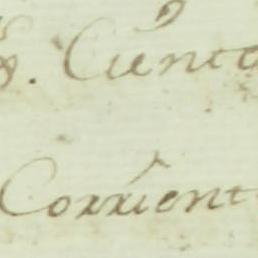 Cuenta
Corriente